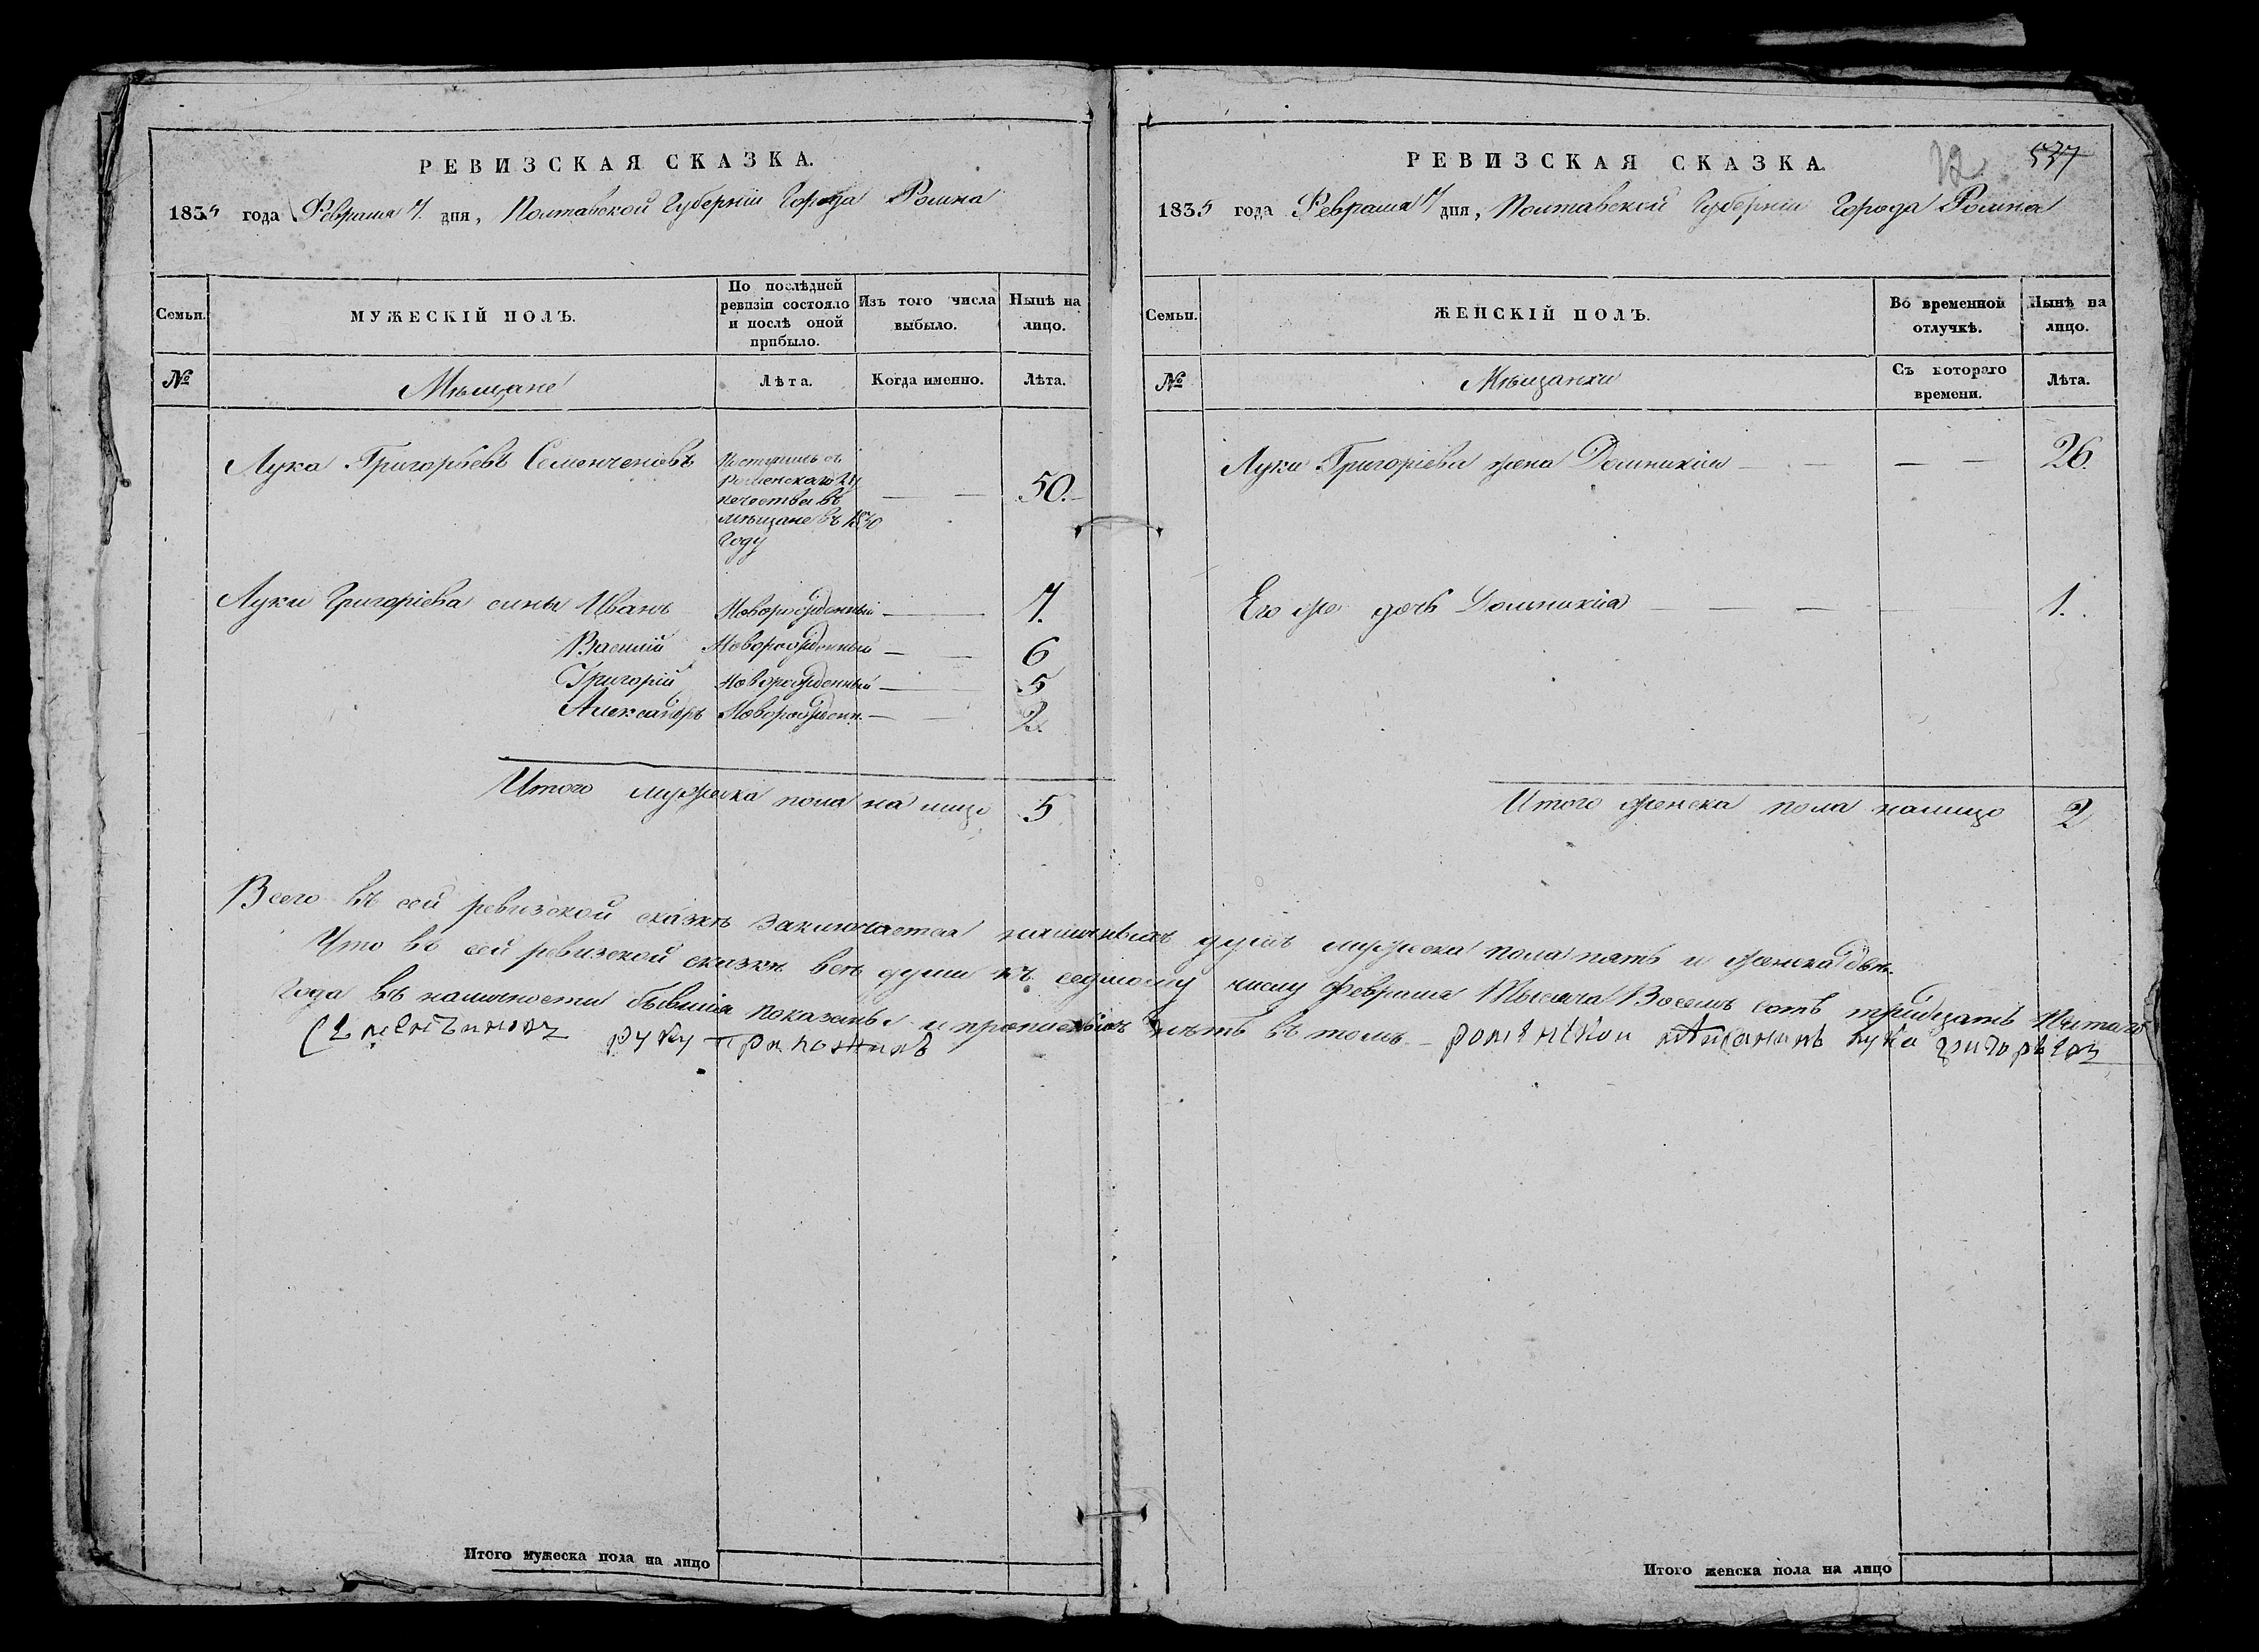 РЕВИЗСКАЯ СКАЗКА.
1835 года Февраля 7. дня, Полтавской Губерніи Города Ромна
Семьи.
МУЖЕСКІЙ ПОЛЪ.
По послѣдней ревизіи состояло и послѣ оной прибыло.
Изъ того числа выбыло.
Нынѣ на лицо.
№
Мѣщане
Лѣта.
Когда именно.
Лѣта.
Лука Григорьевъ Семенченовъ
Поступилъ съ
Роменскаго Ку
печества въ
мѣщане въ 1830
году
50.
Луки Григоріева сины Иванъ Новорожденный 7.
Василій Новорожденный 6
Григорій Новорожденный 5
Александръ Новорожденн. 2.
Итого мужеска пола на лицо 5
РЕВИЗСКАЯ СКАЗКА.
12 537
1835 года Февраля 7 дня, Полтавской Губерніи Города Ромна
Семьи.
ЖЕНСКІЙ ПОЛЪ.
Во временной отлучкѣ.
Нынѣ на лицо.
№
Мѣщанки
Съ котораго времени.
Лѣта.
Луки Григоріева жена Домникія 26.
Его же дочь Домникія 1.
Итого женска пола налицо 2
Всего въ сей ревизской сказкѣ заключается наличныхъ душъ мужеска пола пять и женска двѣ.
Что въ сей ревизской сказкѣ всѣ души къ седмому числу Февраля Тысяча Восемь сотъ тридцать Пятаго
года въ наличности бывшія показаны и прописныхъ нѣтъ въ томъ – роменской мѣщанинъ лука григорьевъ
Семенченовъ руку приложилъ
Итого мужеска пола на лицо
Итого женска пола на лицо